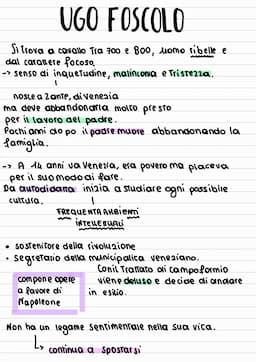 UGO FOSCOLO
Si trova a cavallo tra 700 e 800, uomo ribelle e
dal carattere focoso.
-> senso di inquetudine, malinconia e tristezza.
nosce a Zante, di Venezia
ma deve abbandonarla molto presto
per il lavoro del padre.
Pochi anni dopo il padre muore abbandonando la
famiglia.
-> A 14 anni va Venezia, era povero ma piaceva
per il suo modo di fare.
Da autodidatta inizia a studiare ogni possibile
cultura.
FREQUENTA AMBIENTI
INTELLETTUALI
• sostenitore della rivoluzione
• segretario della municipalità veneziano.
Con il Trattato di campoformio
viene deluso e decide di andare
in esilio.
compone opere
a favore di
Napoleone
Non ha un legame sentimentale nella sua vica.
↳ continua a spostarsi